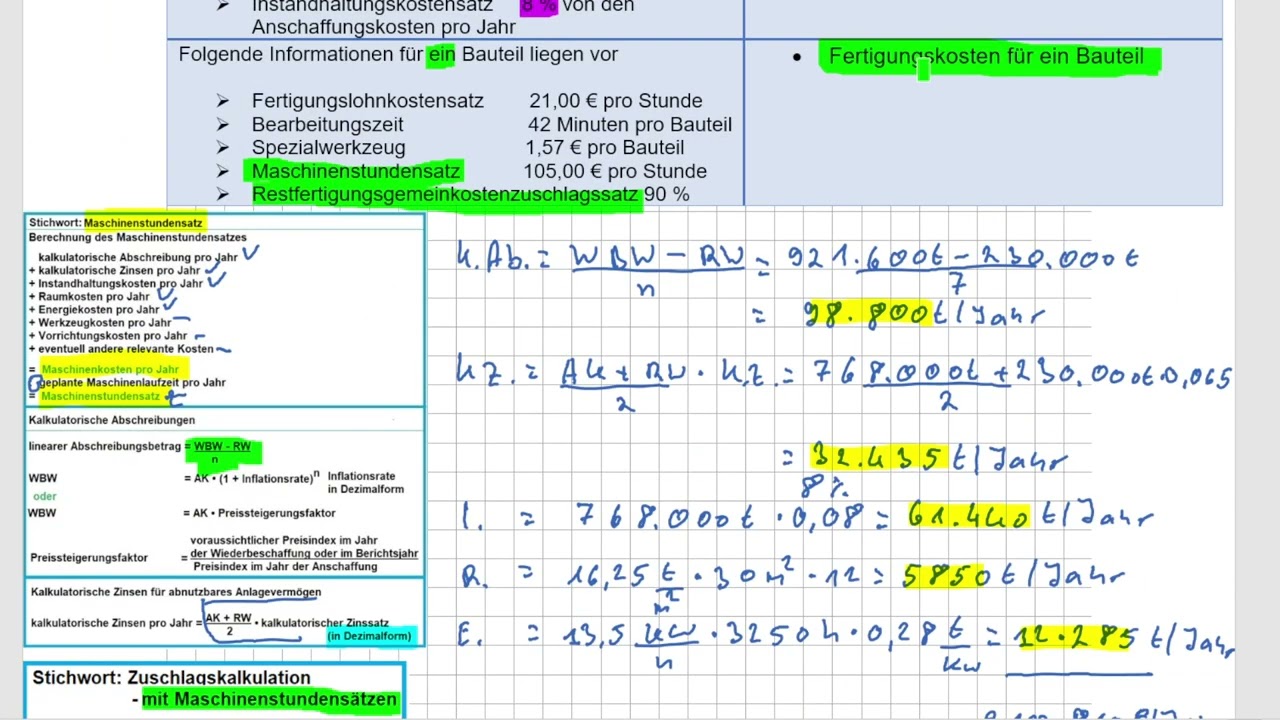 Instandhaltungskostensatz 8 % von den
Anschaffungskosten pro Jahr
Folgende Informationen für ein Bauteil liegen vor
• Fertigungskosten für ein Bauteil
➢ Fertigungslohnkostensatz 21,00 € pro Stunde
➢ Bearbeitungszeit 42 Minuten pro Bauteil
➢ Spezialwerkzeug 1,57 € pro Bauteil
➢ Maschinenstundensatz 105,00 € pro Stunde
➢ Restfertigungsgemeinkostenzuschlagssatz 90 %
Stichwort: Maschinenstundensatz
Berechnung des Maschinenstundensatzes
kalkulatorische Abschreibung pro Jahr
+ kalkulatorische Zinsen pro Jahr
+ Instandhaltungskosten pro Jahr
+ Raumkosten pro Jahr
+ Energiekosten pro Jahr
+ Werkzeugkosten pro Jahr
+ Vorrichtungskosten pro Jahr
+ eventuell andere relevante Kosten
= Maschinenkosten pro Jahr
geplante Maschinenlaufzeit pro Jahr
= Maschinenstundensatz
Kalkulatorische Abschreibungen
linearer Abschreibungsbetrag = WBW - RW
n
WBW = AK • (1 + Inflationsrate)n Inflationsrate
in Dezimalform
oder
WBW = AK • Preissteigerungsfaktor
voraussichtlicher Preisindex im Jahr
Preissteigerungsfaktor = der Wiederbeschaffung oder im Berichtsjahr
Preisindex im Jahr der Anschaffung
Kalkulatorische Zinsen für abnutzbares Anlagevermögen
kalkulatorische Zinsen pro Jahr = AK + RW • kalkulatorischer Zinssatz
2
(in Dezimalform)
Stichwort: Zuschlagskalkulation
- mit Maschinenstundensätzen
K.Ab. = WBW - RW = 921.600€ - 230.000€
n 7
= 98.800€/Jahr
KZ. = AK + RW • K.Z. = 768.000€ + 230.000€•0,065
2 2
= 32.435€/Jahr
8%
I. = 768.000€ • 0,08 = 61.440€/Jahr
R. = 16,25 € • 30m² • 12 = 5850€/Jahr
m²
E. = 13,5 kW • 3250h • 0,28 € = 12.285€/Jahr
h kW